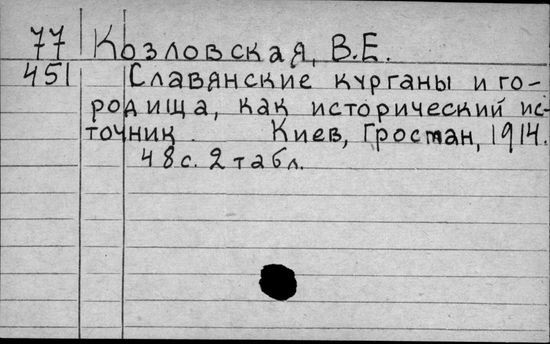 77 Козловская, В.Е.
451 Славянские курганы и го-
родища, как исторический ис-
точник. Киев, Гросман, 1914.
48с. 2 табл.